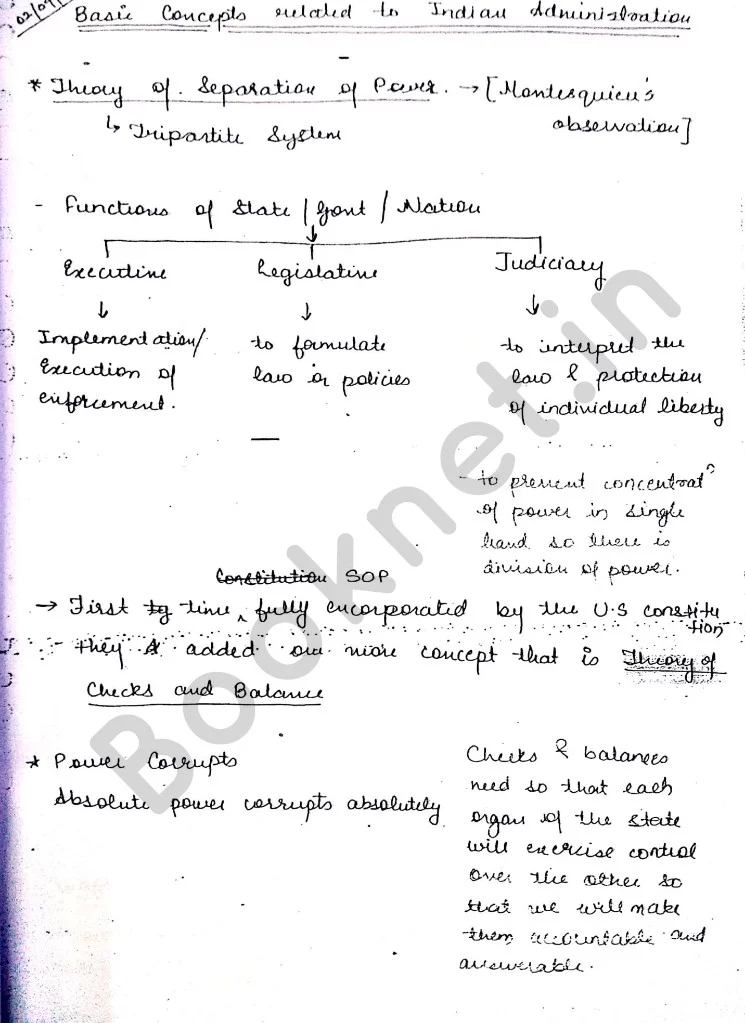 02/07
Basic Concepts related to Indian Administration
* Theory of Separation of Power. → [Montesquieu's
observation]
↳ Tripartite System
- Functions of State / Govt / Nation
Executive Legislative Judiciary
↓ ↓ ↓
Implementation/ to formulate to interpret the
Execution of law or policies law & protection
enforcement. of individual liberty
- to prevent concentratⁿ
of power in single
hand so there is
division of power.
Constitution SOP
→ First time, fully encorporated by the U.S constitu
tion
- they added one more concept that is Theory of
Checks and Balance
* Power Corrupts
Absolute power corrupts absolutely
Checks & balances
need so that each
organ of the state
will exercise control
over the other so
that we will make
them accountable and
answerable.
Booknet.in